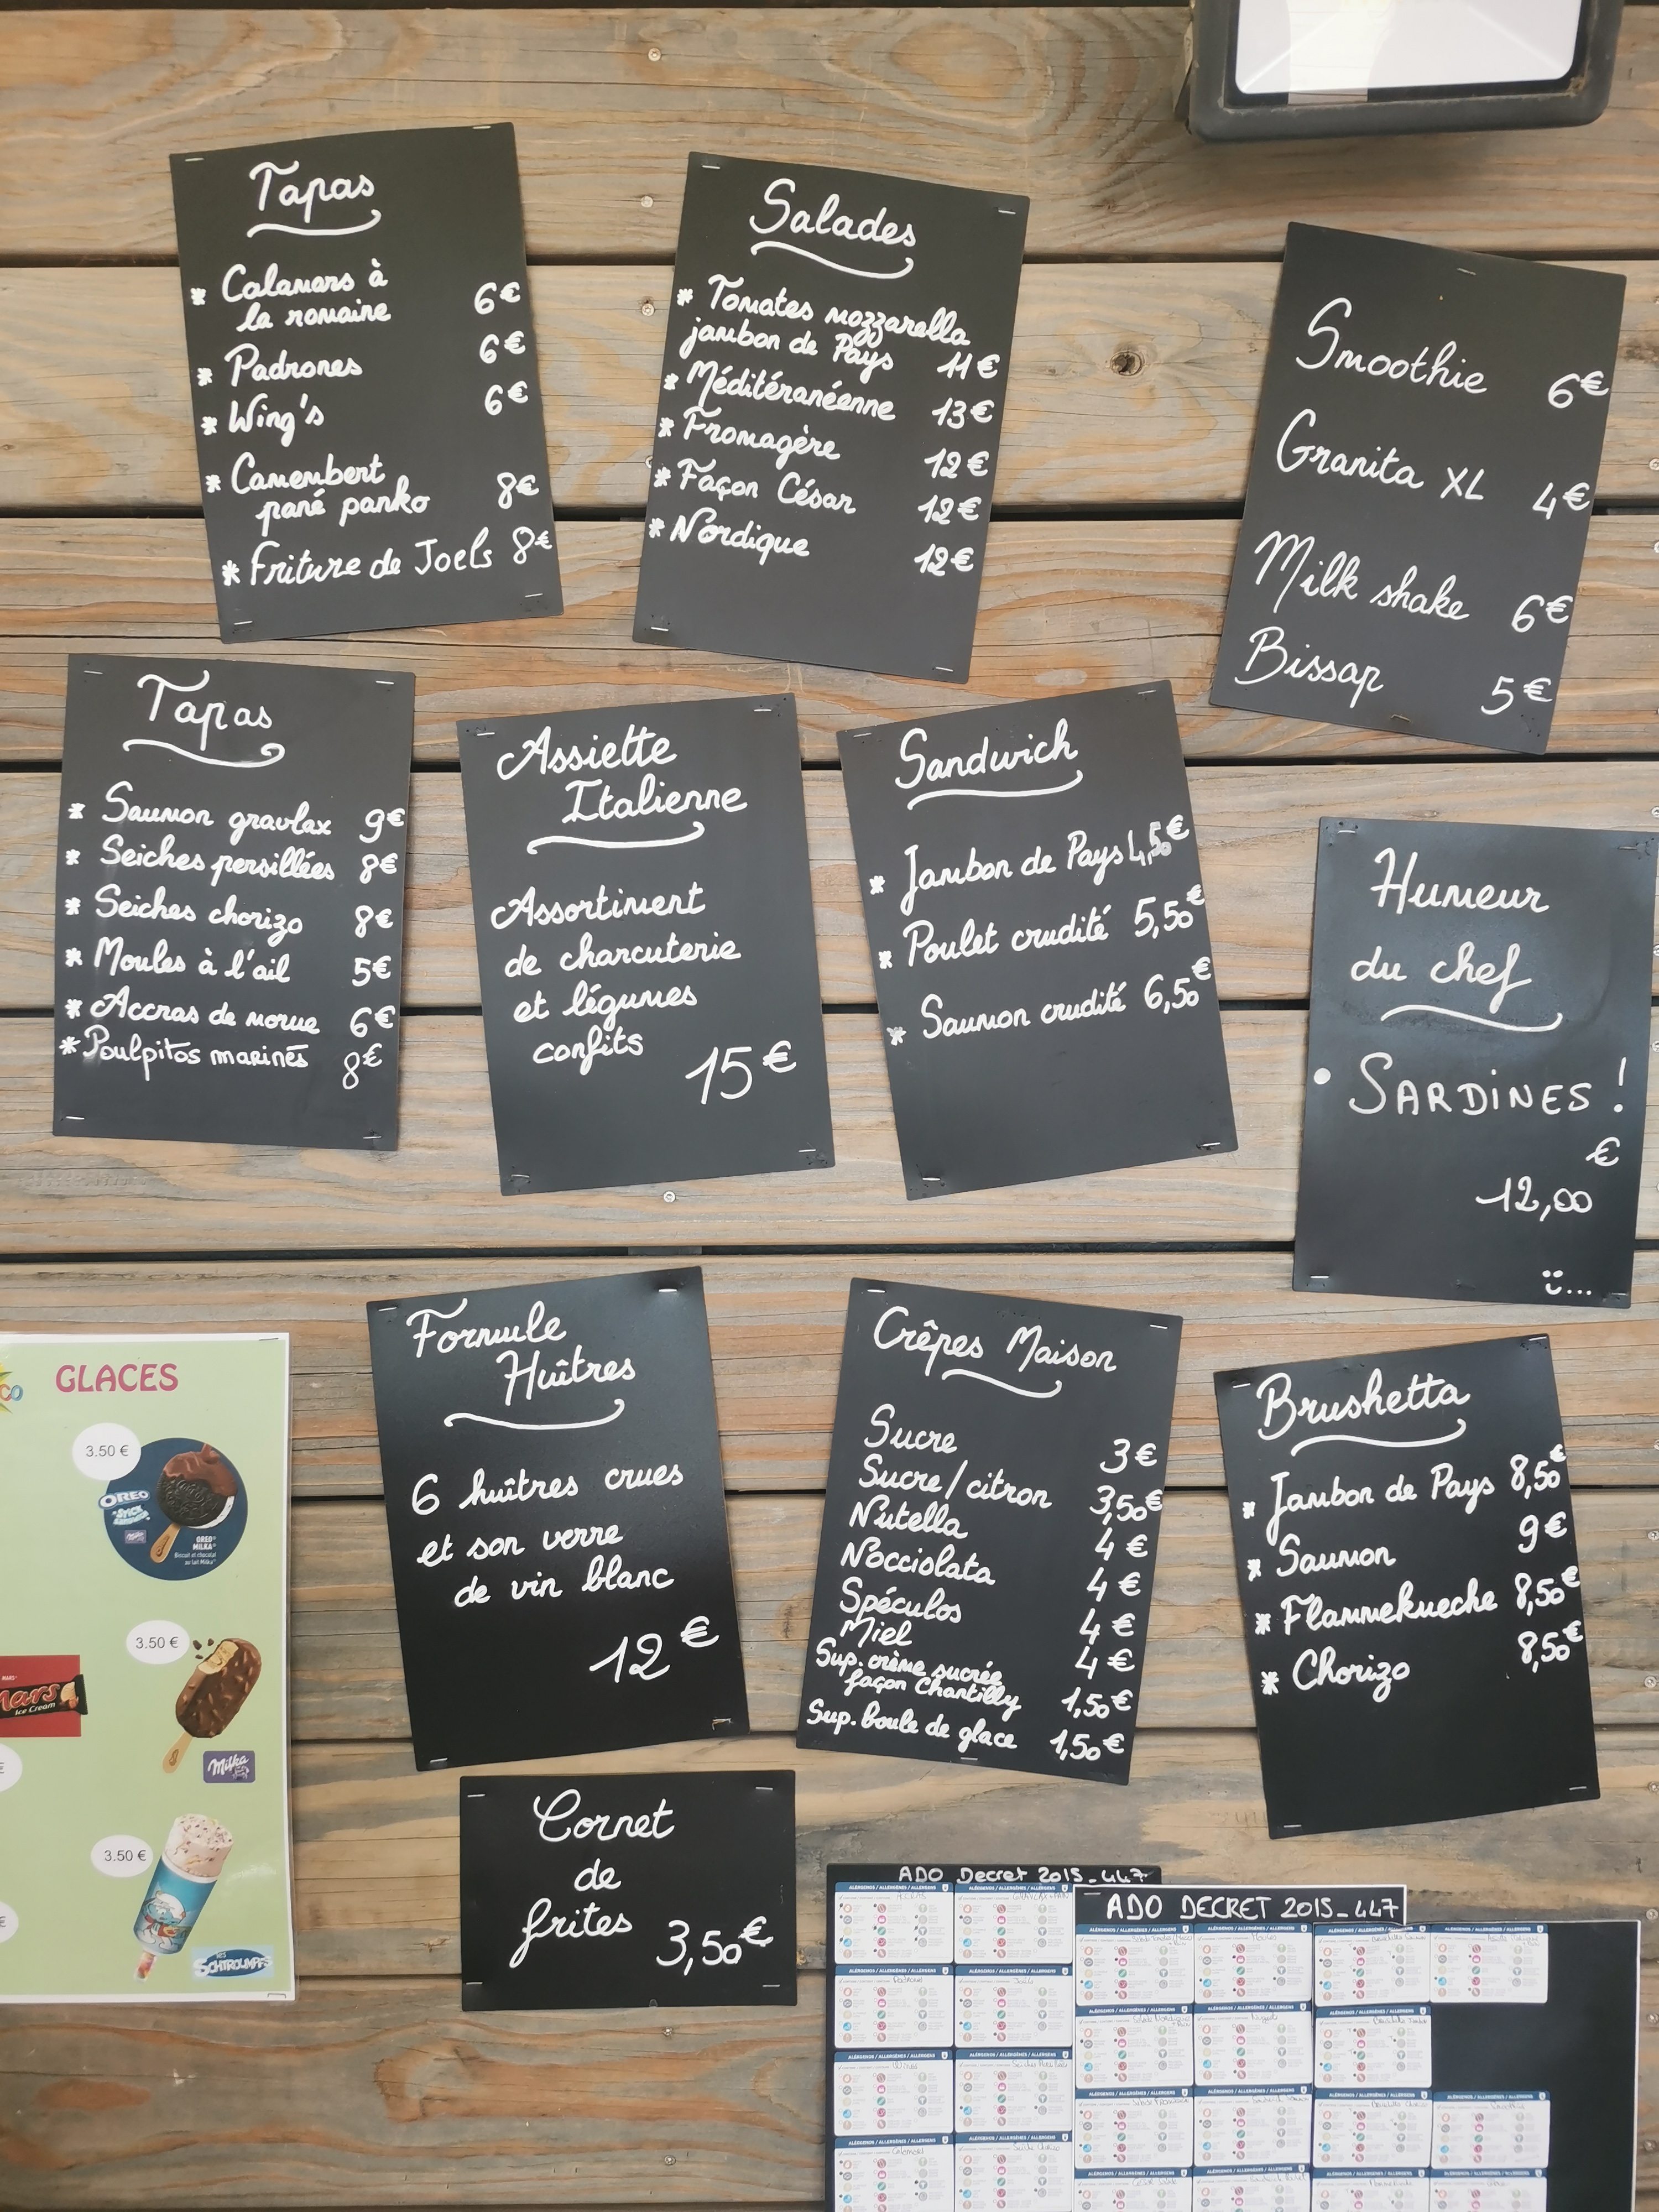 Tapas
* Calamars à
la romaine 6€
* Padrones 6€
* Wing's 6€
* Camembert
pané panko 8€
* Friture de Joels 8€
Salades
* Tomates mozzarella
jambon de Pays 11€
* Méditéranéenne 13€
* Fromagère 12€
* Façon César 12€
* Nordique 12€
Smoothie 6€
Granita XL 4€
Milk shake 6€
Bissap 5€
Tapas
* Saumon gravlax 9€
* Seiches persillées 8€
* Seiches chorizo 8€
* Moules à l'ail 5€
* Accras de morue 6€
* Poulpitos marinés 8€
Assiette
Italienne
Assortiment
de charcuterie
et légumes
confits
15€
Sandwich
* Jambon de Pays 4,50€
* Poulet crudité 5,50€
* Saumon crudité 6,50€
Humeur
du chef
• SARDINES !
€
12,00
Formule
Huîtres
6 huîtres crues
et son verre
de vin blanc
12€
Crêpes Maison
Sucre 3€
Sucre/citron 3,50€
Nutella 4€
Nocciolata 4€
Spéculos 4€
Miel 4€
Sup. crème sucrée
façon Chantilly 1,50€
Sup. boule de glace 1,50€
Brushetta
* Jambon de Pays 8,50€
* Saumon 9€
* Flammekueche 8,50€
* Chorizo 8,50€
GLACES
3.50 €
OREO
OREO®
MILKA®
Biscuit et chocolat
au lait Milka®
3.50 €
Mars
Ice Cream
Milka
3.50 €
LES
SCHTROUMPFS
Cornet
de
frites 3,50€
ADO Decret 2015_447
ADO DECRET 2015_447
ALÉRGENOS / ALLERGÈNES / ALLERGENS